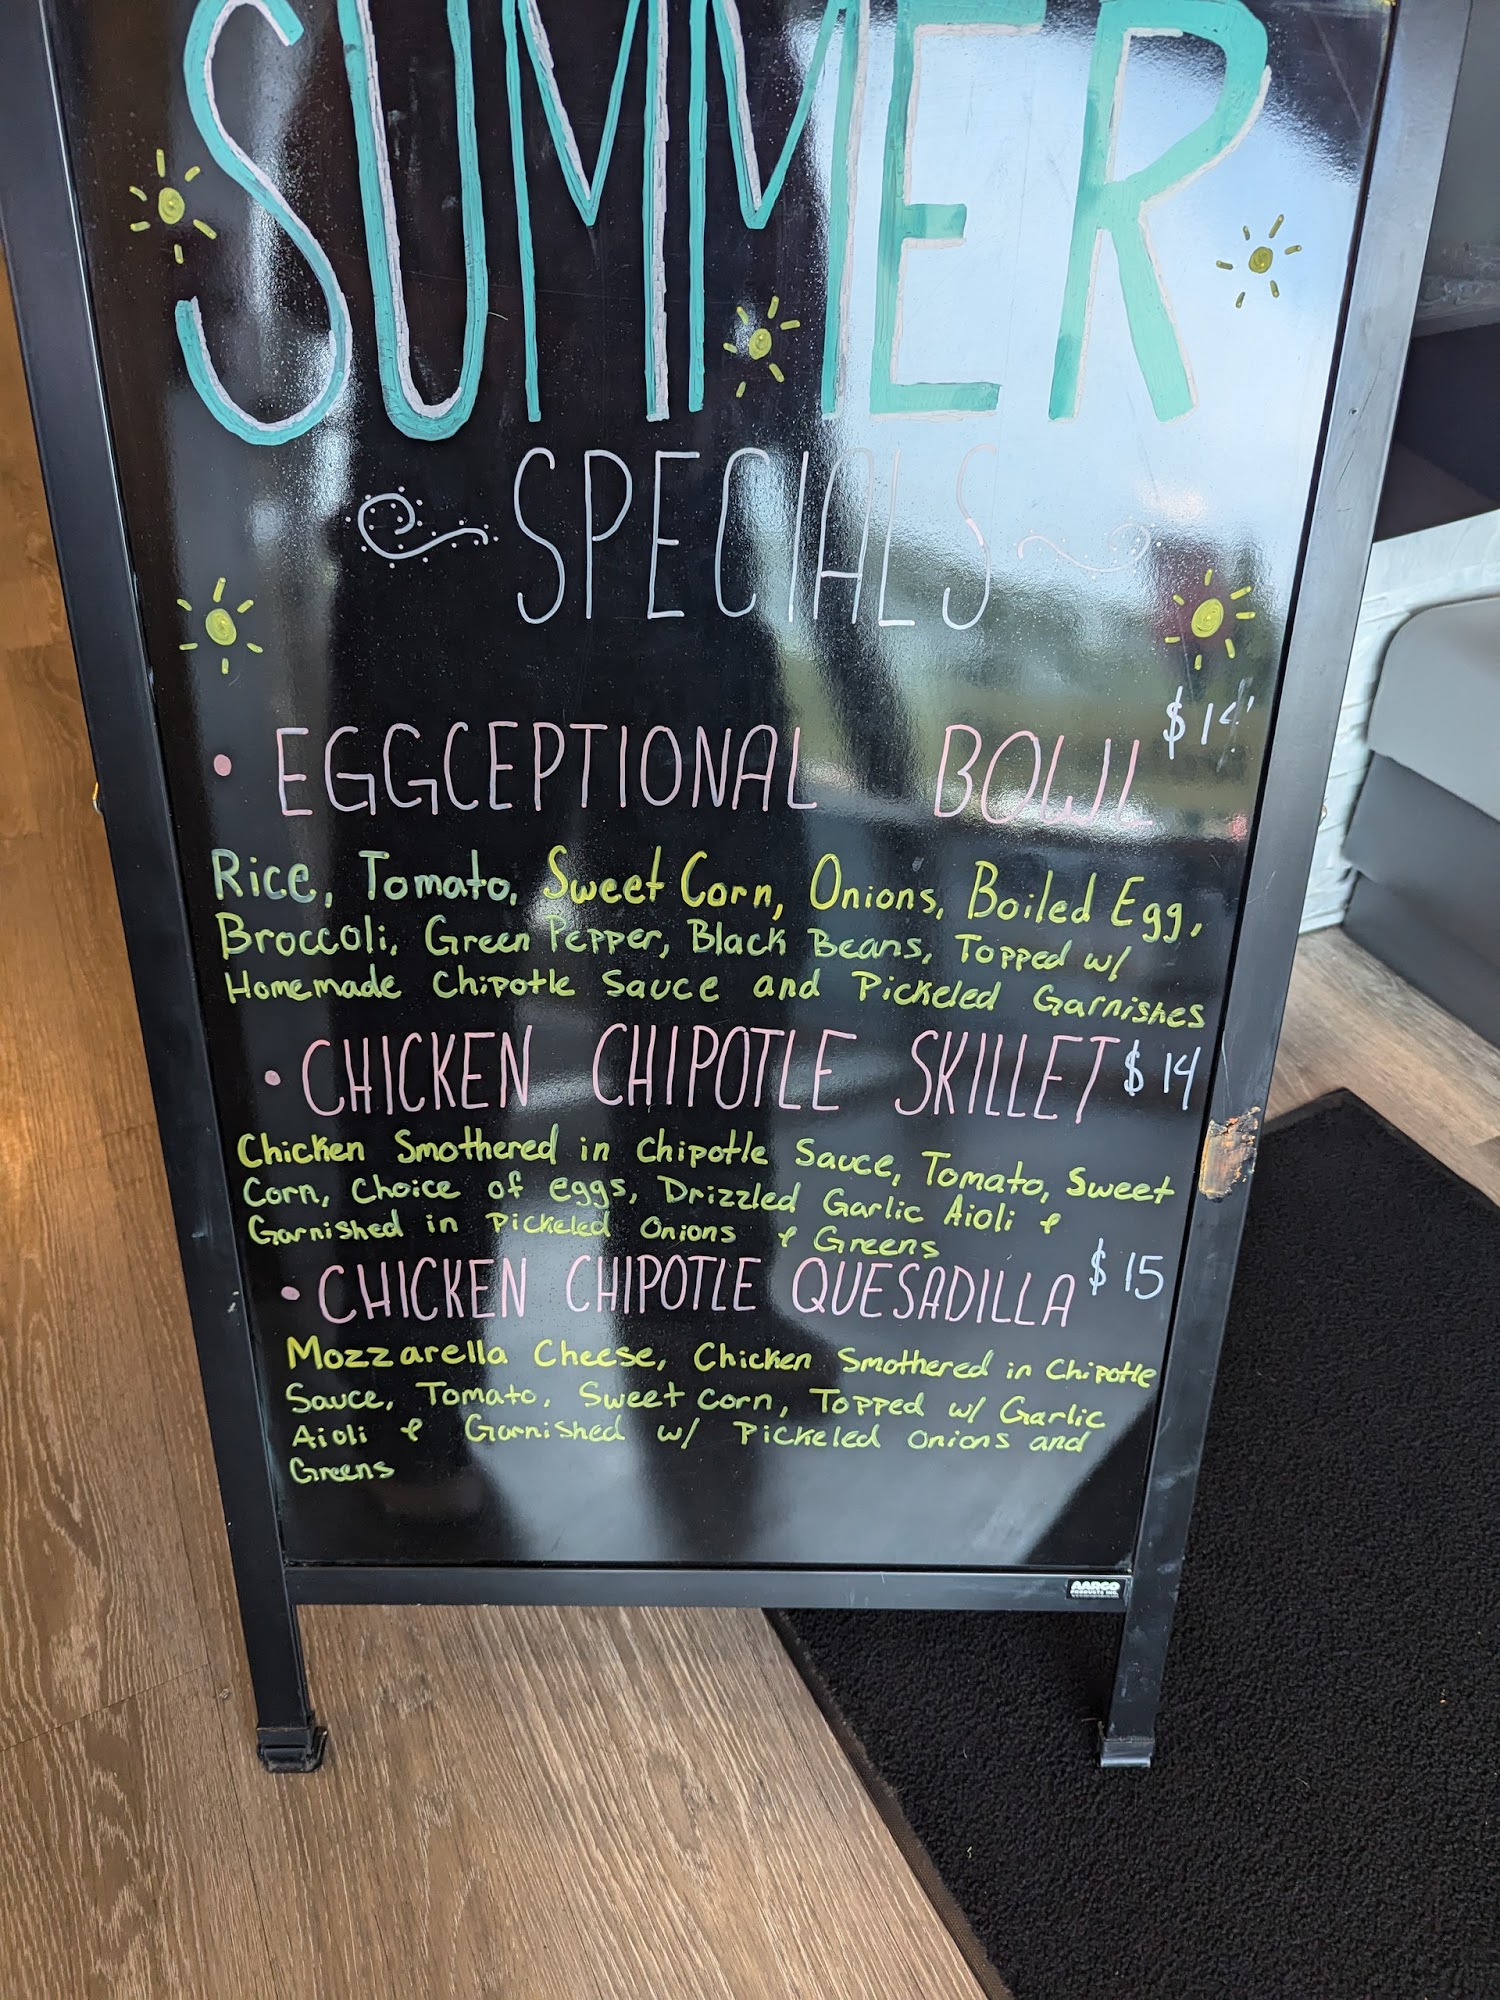 SUMMER
SPECIALS
• EGGCEPTIONAL BOWL $14
Rice, Tomato, Sweet Corn, Onions, Boiled Egg,
Broccoli, Green Pepper, Black Beans, Topped w/
Homemade Chipotle Sauce and Pickeled Garnishes
• CHICKEN CHIPOTLE SKILLET $14
Chicken Smothered in Chipotle Sauce, Tomato, Sweet
Corn, Choice of eggs, Drizzled Garlic Aioli &
Garnished in Pickeled Onions & Greens
• CHICKEN CHIPOTLE QUESADILLA $15
Mozzarella Cheese, Chicken Smothered in Chipotle
Sauce, Tomato, Sweet Corn, Topped w/ Garlic
Aioli & Garnished w/ Pickeled Onions and
Greens
AARCO
PRODUCTS INC.